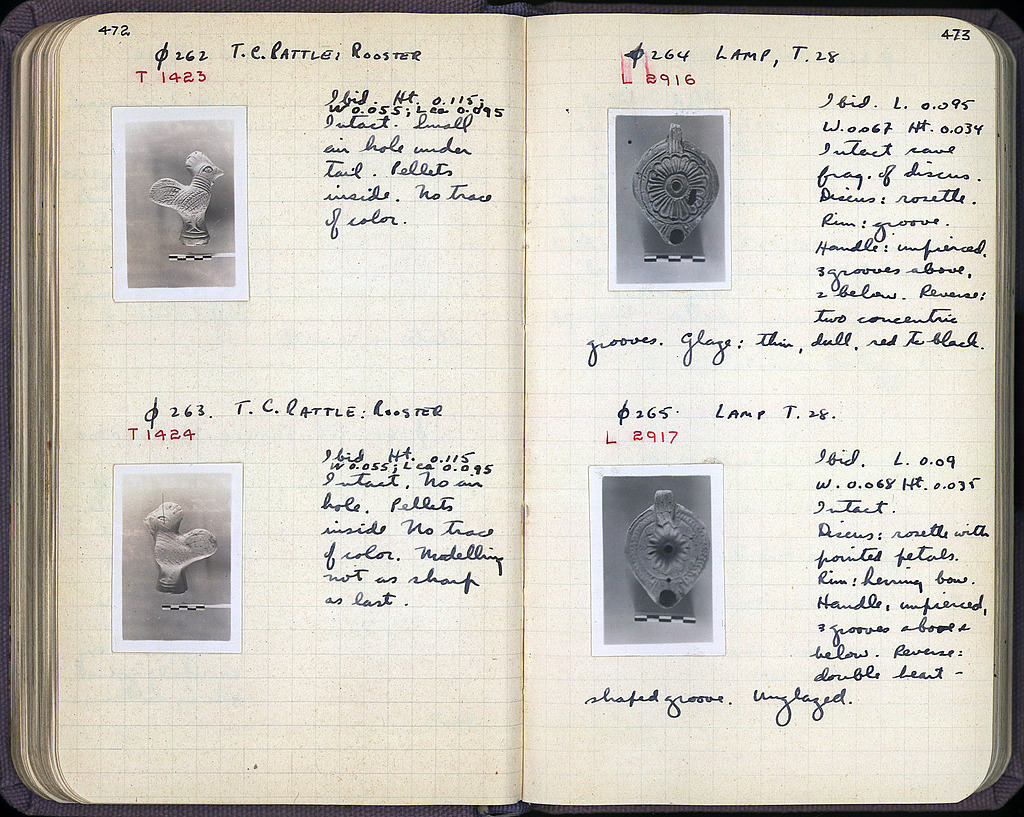 472
ϕ 262 T.C. RATTLE: ROOSTER
T 1423
Ibid. Ht. 0.115;
W 0.055; L ca 0.095
Intact. Small
air hole under
tail. Pellets
inside. No trace
of color.
ϕ 263. T.C. RATTLE: ROOSTER
T 1424
Ibid. Ht. 0.115
W 0.055; L ca 0.095
Intact. No air
hole. Pellets
inside No trace
of color. Modelling
not as sharp
as last.
473
ϕ 264 LAMP, T. 28
L 2916
Ibid. L. 0.095
W. 0.067 Ht. 0.034
Intact save
frag. of discus.
Discus: rosette.
Rim: groove.
Handle: unpierced,
3 grooves above,
2 below. Reverse:
two concentric
grooves. Glaze: thin, dull, red to black.
ϕ 265. LAMP T. 28.
L 2917
Ibid. L. 0.09
W. 0.068 Ht. 0.035
Intact.
Discus: rosette with
pointed petals.
Rim: herring bone.
Handle, unpierced,
3 grooves above &
below. Reverse:
double heart-
shaped groove. Unglazed.